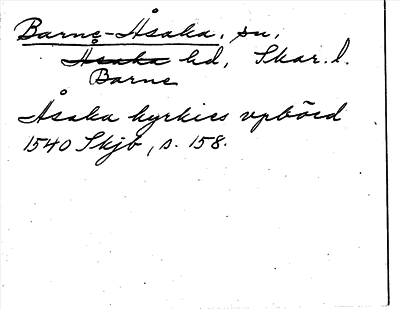 Barne-Åsaka, sn,
Åsaka hd, Skar. l.
Barne
Åsaka kyrkies vpbörd
1540 Skjb, s. 158.